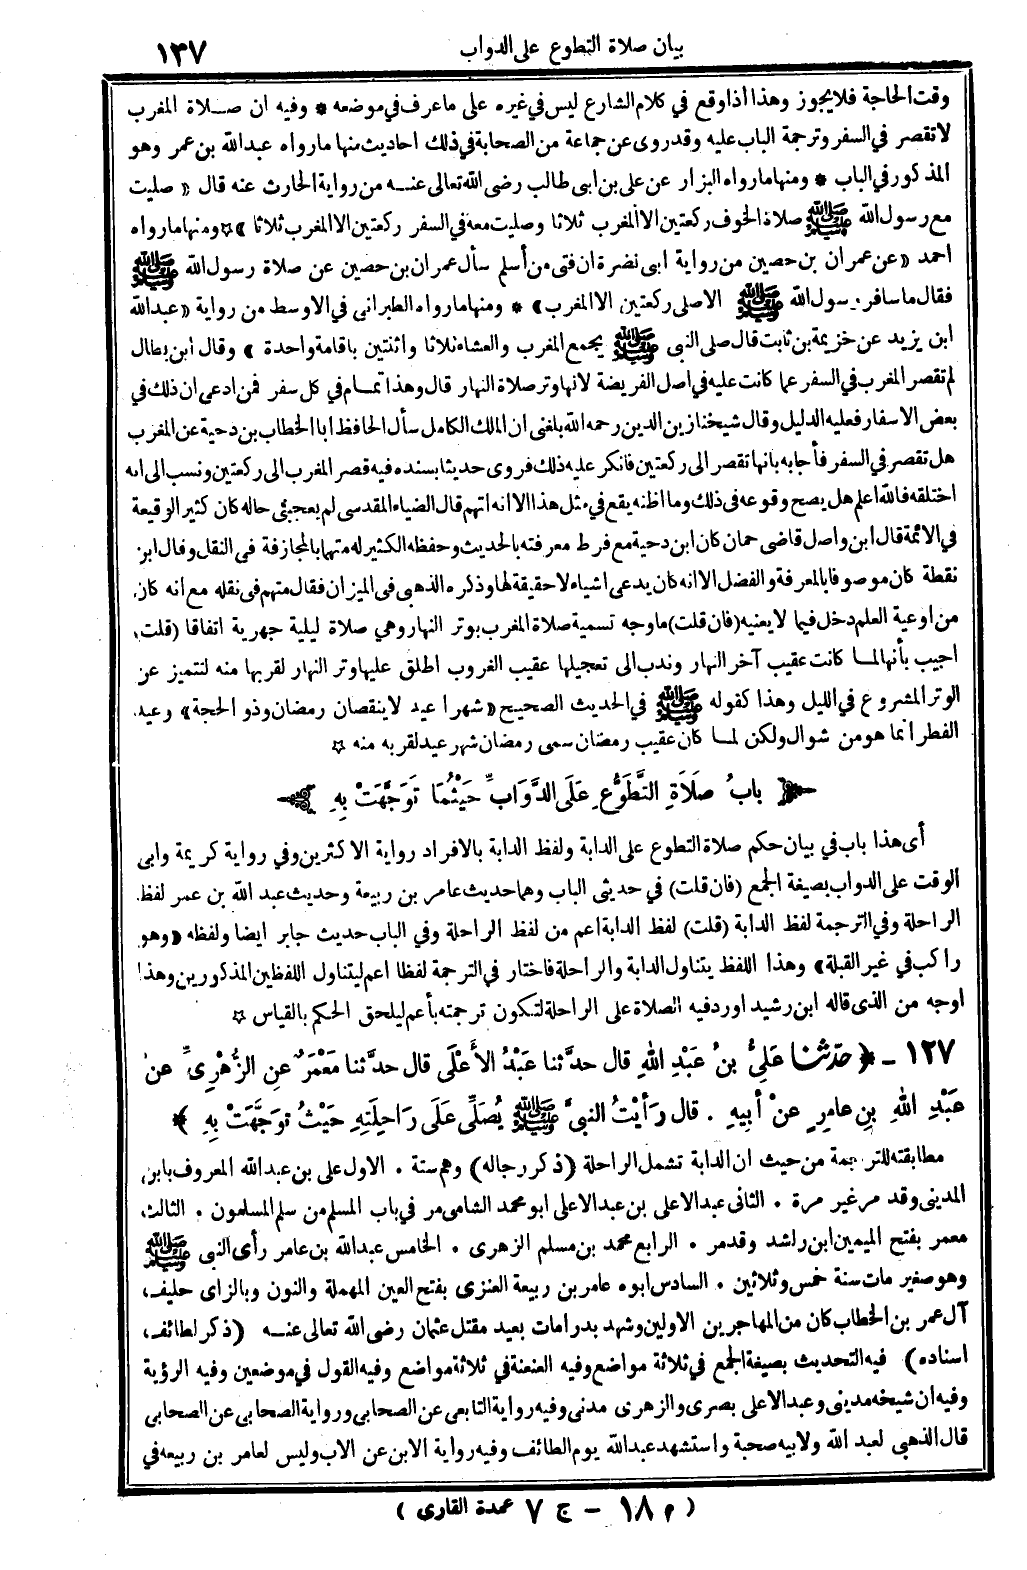 بيان صلاة التطوع على الدواب
١٣٧
وقت الحاجة فلا يجوز وهذا أذا وقع في كلام الشارع ليس في غيره على ما عرف في موضعه * وفيه ان صلاة المغرب
لا تقصر في السفر وترجمة الباب عليه وقد روى عن جماعة من الصحابة في ذلك احاديث منها مارواه عبد الله بن عمر وهو
المذكور في الباب * ومنها مارواه البزار عن على بن ابى طالب رضى الله تعالى عنه من رواية الحارث عنه قال « صليت
مع رسول الله ﷺ صلاة الخوف ركعتين الا المغرب ثلاثا وصليت معه في السفر ركعتين الا المغرب ثلاثا » ☆ ومنها مارواه
احمد « عن عمران بن حصين من رواية ابى نضرة ان فتى من أسلم سأل عمران بن حصين عن صلاة رسول الله ﷺ
فقال ما سافر رسول الله ﷺ الا صلى ركعتين الا المغرب » * ومنها مارواه الطبرانى في الاوسط من رواية « عبدالله
ابن يزيد عن خزيمة بن ثابت قال صلى النبى ﷺ بجمع المغرب والعشاء ثلاثا واثنتين باقامة واحدة » وقال ابن بطال
لم تقصر المغرب في السفر عما كانت عليه في اصل الفريضة لانها وتر صلاة النهار قال وهذا تمام في كل سفر فمن ادعى ان ذلك في
بعض الاسفار فعليه الدليل وقال شيخنا زين الدين رحمه الله بلغنى ان الملك الكامل سأل الحافظ ابا الخطاب بن دحية عن المغرب
هل تقصر في السفر فأجابه بانها تقصر الى ركعتين فانكر عليه ذلك فروى حديثا بسنده فيه قصر المغرب الى ركعتين ونسب الى انه
اختلقه فالله اعلم هل يصح وقوعه في ذلك وما اظنه يقع في مثل هذا الا انه اتهم قال الضياء المقدسى لم يعجبنى حاله كان كثير الوقيعة
في الائمة قال ابن واصل قاضى حماة كان ابن دحية مع فرط معرفته بالحديث وحفظه الكثير له متهما بالمجازفة في النقل وقال ابن
نقطة كان موصوفا بالمعرفة والفضل الا انه كان يدعى اشياء لا حقيقة لها وذكره الذهبى في الميزان فقال متهم فى نقله مع انه كان
من اوعية العلم دخل فيما لا يعنيه (فان قلت) ما وجه تسمية صلاة المغرب بوتر النهار وهى صلاة ليلية جهرية اتفاقا (قلت)
اجيب بأنها لما كانت عقيب آخر النهار وندب الى تعجيلها عقيب الغروب اطلق عليها وتر النهار لقربها منه لتتميز عن
الوتر المشروع في الليل وهذا كقوله ﷺ في الحديث الصحيح « شهرا عيد لا ينقصان رمضان وذو الحجة » وعيد
الفطر انما هو من شوال ولكن لما كان عقيب رمضان سمى رمضان شهر عيد لقربه منه ☆
باب صَلَاةِ التَّطَوُّعِ عَلَى الدَّوَابِّ حَيْثُمَا تَوَجَّهَتْ بِهِ
أى هذا باب في بيان حكم صلاة التطوع على الدابة ولفظ الدابة بالافراد رواية الاكثرين وفي رواية كريمة وابى
الوقت على الدواب بصيغة الجمع (فان قلت) في حديثى الباب وهما حديث عامر بن ربيعة وحديث عبد الله بن عمر لفظ
الراحلة وفي الترجمة لفظ الدابة (قلت) لفظ الدابة اعم من لفظ الراحلة وفي الباب حديث جابر ايضا ولفظه « وهو
راكب في غير القبلة » وهذا اللفظ يتناول الدابة والراحلة فاختار في الترجمة لفظا اعم ليتناول اللفظين المذكورين وهذا
اوجه من الذى قاله ابن رشيد اورد فيه الصلاة على الراحلة لتكون ترجمته بأعم ليلحق الحكم بالقياس ☆
١٢٧ - ﴿ حدثنا عَلِيُّ بنُ عَبْدِ اللهِ قال حدَّثنا عَبْدُ الأَعْلَى قال حدَّثنا مَعْمَرٌ عنِ الزُّهْرِىِّ عنْ
عَبْدِ اللهِ بنِ عامِرٍ عنْ أبِيهِ . قال رَأيْتُ النبىَّ ﷺ يُصَلِّى عَلَى رَاحِلَتِهِ حَيْثُ تَوَجَّهَتْ بِهِ ﴾
مطابقته للترجمة من حيث ان الدابة تشمل الراحلة (ذكر رجاله) وهم ستة . الاول على بن عبدالله المعروف بابن
المدينى وقد مر غير مرة . الثانى عبد الاعلى بن عبد الاعلى ابو محمد الشامى مر في باب المسلم من سلم المسلمون . الثالث
معمر بفتح الميمين ابن راشد وقد مر . الرابع محمد بن مسلم الزهرى . الخامس عبدالله بن عامر رأى النبى ﷺ
وهو صغير مات سنة خمس وثلاثين . السادس ابوه عامر بن ربيعة العنزى بفتح العين المهملة والنون وبالزاى حليف
آل عمر بن الخطاب كان من المهاجرين الاولين وشهد بدرا مات بعيد مقتل عثمان رضى الله تعالى عنه (ذكر لطائف
اسناده) فيه التحديث بصيغة الجمع في ثلاثة مواضع وفيه العنعنة في ثلاثة مواضع وفيه القول في موضعين وفيه الرؤية
وفيه ان شيخه مدينى وعبد الاعلى بصرى والزهرى مدنى وفيه رواية التابعى عن الصحابى ورواية الصحابى عن الصحابى
قال الذهبى لعبد الله ولابيه صحبة واستشهد عبدالله يوم الطائف وفيه رواية الابن عن الاب وليس لعامر بن ربيعة في
( م ١٨ - ج ٧ عمدة القارى )